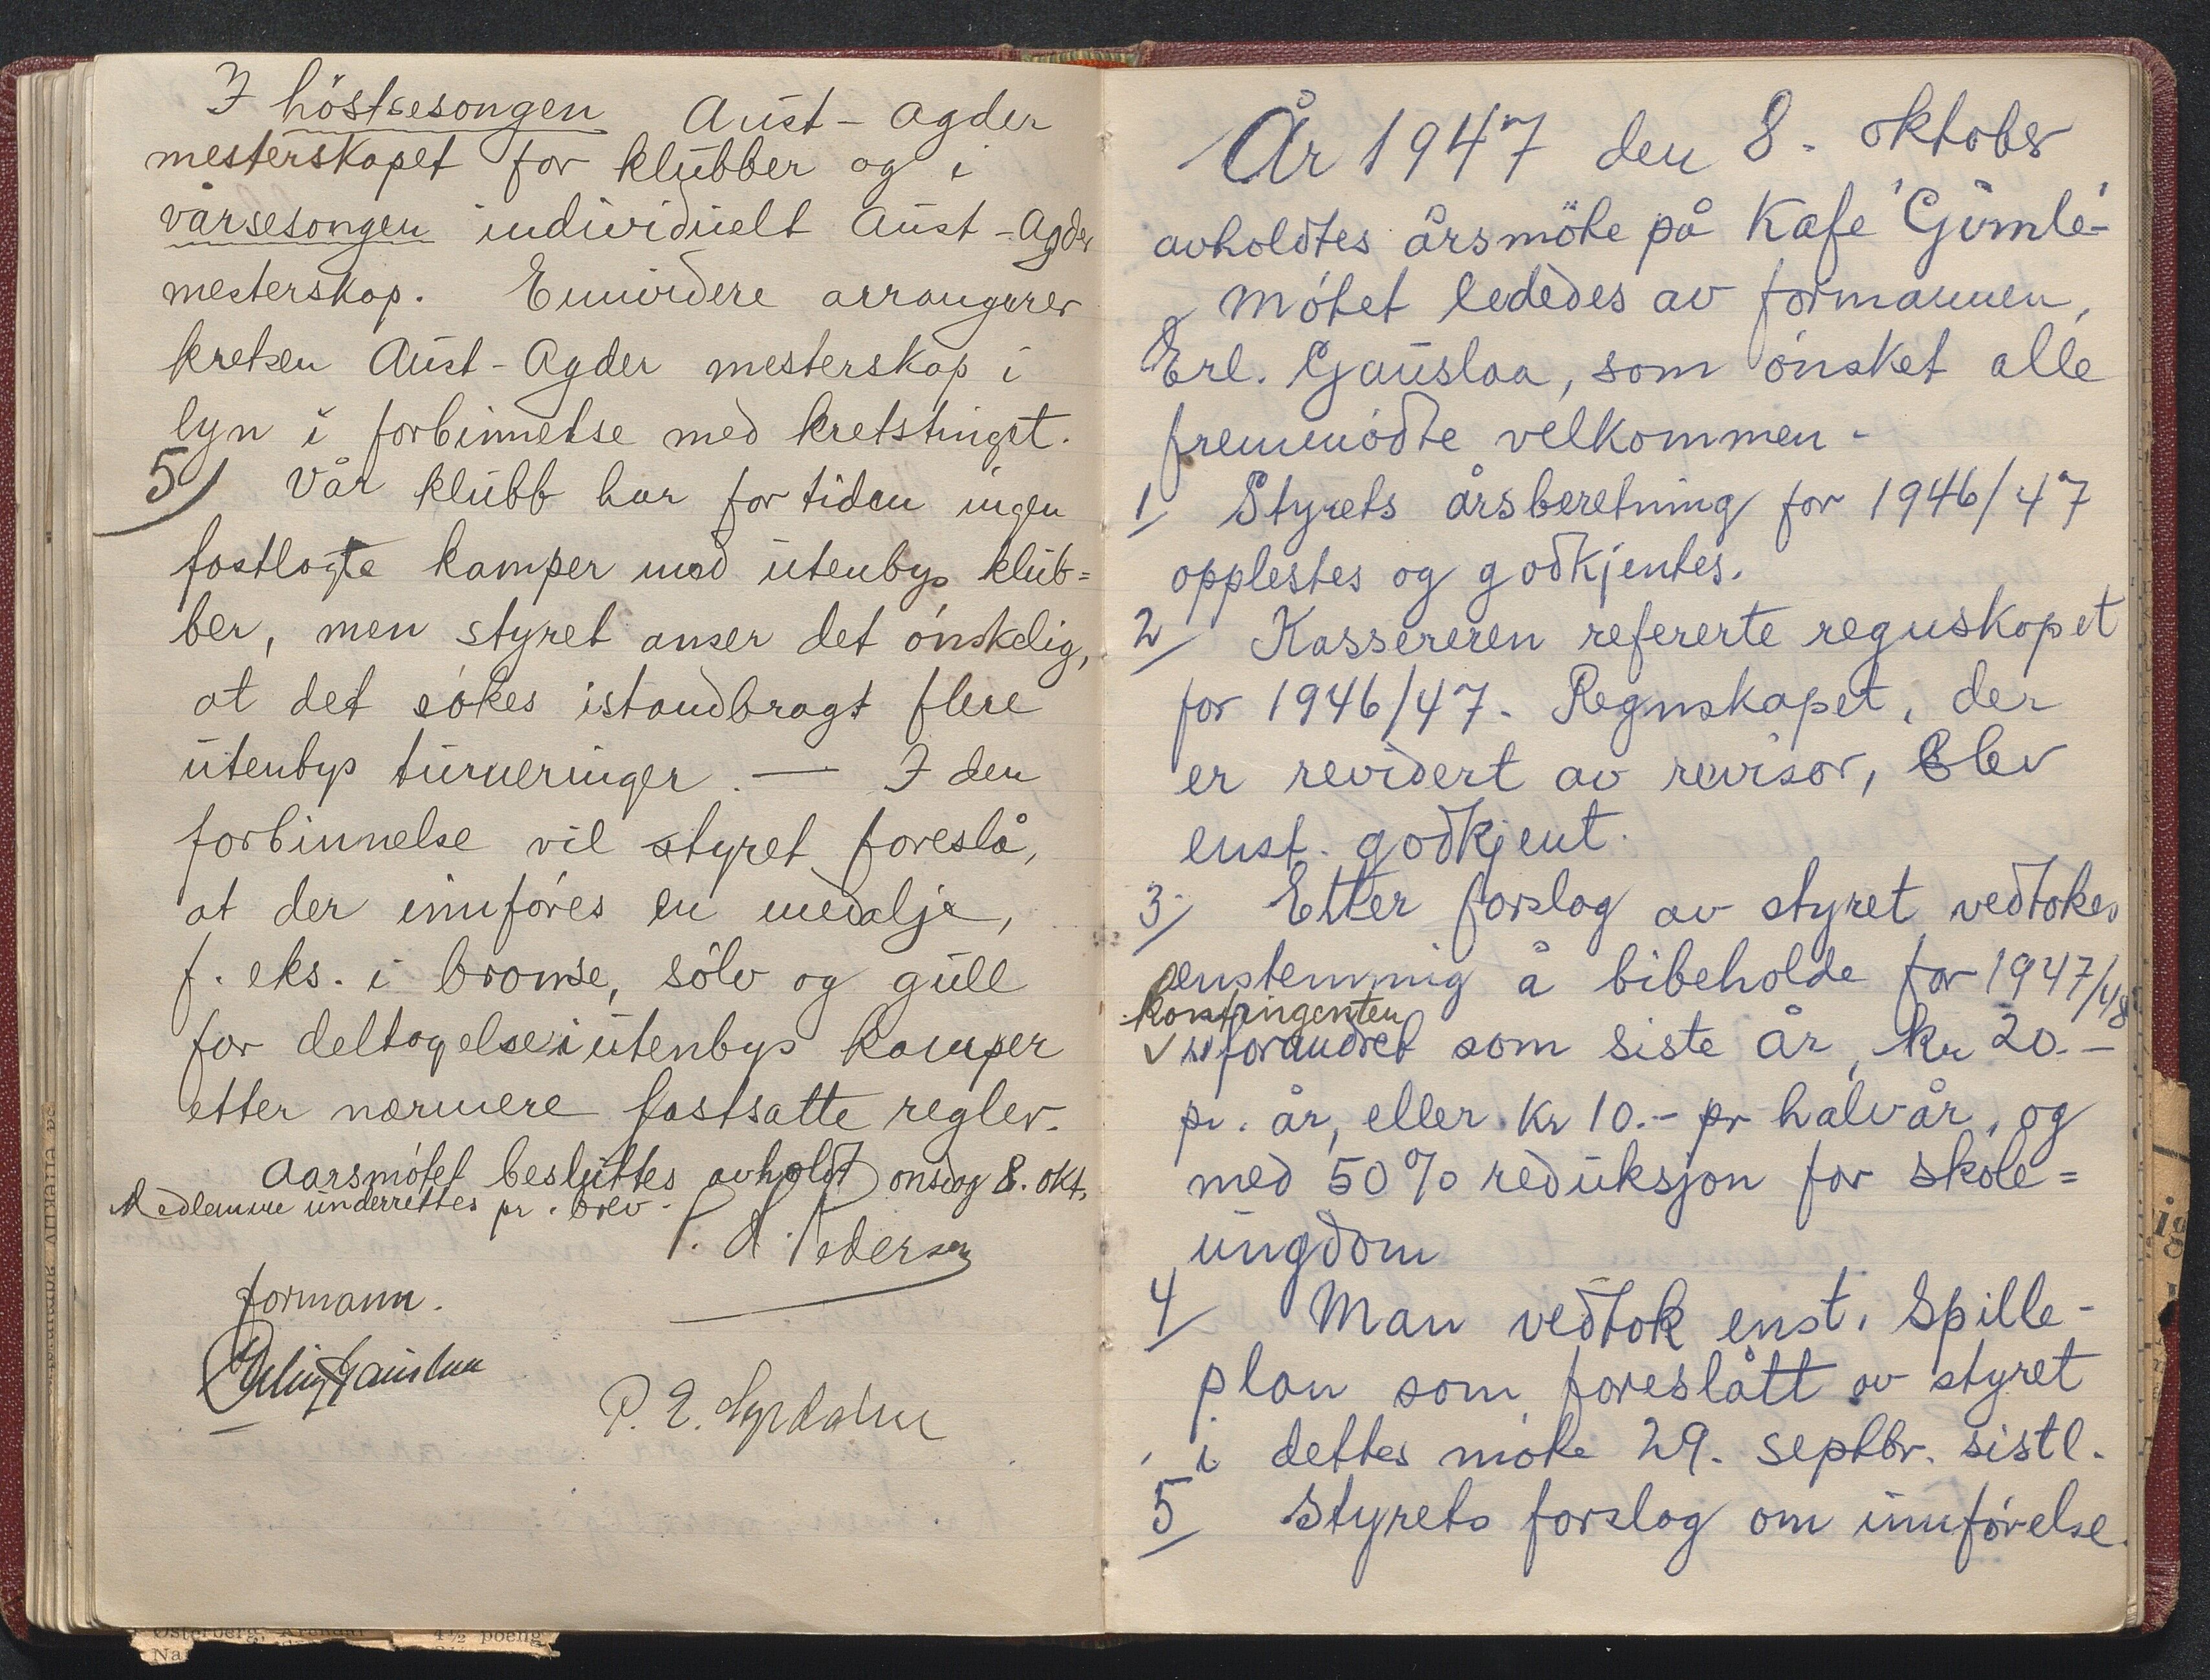 I höstsesongen Aust-Agder
mesterskapet for klubber og i
vårsesongen individuelt Aust-Agder
mesterskap. Enuvidere arrangerer
kretsen Aust-Agder mesterskap i
lyn i forbinnelse med kretstinget.
5/ Vår klubb har for tiden ingen
fastlagte kamper med utenbys klub=
ber, men styret anser det ónskelig,
at det sókes istandbragt flere
utenbys turneringer. — I den
forbinnelse vil styret foreslå,
at der innfóres en medalje,
f. eks. i bronse, sólv og gull
for deltagelse i utenbys kamper
etter nærmere fastsatte regler.
Aarsmótet besluttes avholdt onsdag 8. okt.
Medlemme underrettes pr. brev.
P. A. Pedersen
formann.
Erling Gauslaa
År 1947 den 8. oktober
avholdtes årsmöte på Kafe "Gimle"
Mótet lededes av formannen,
Erl. Gauslaa, som ónsket alle
fremmódte velkommen.
1/ Styrets årsberetning for 1946/47
opplestes og godkjentes.
2/ Kassereren refererte regnskapet
for 1946/47. Regnskapet, der
er revidert av revisor, blev
enst. godkjent.
3/ Etter forslag av styret vedtokes
enstemmig å bibeholde for 1947/48
kontingenten
✓ uforandret som siste år, kr 20.-
pr. år, eller kr 10.- pr halvår, og
med 50% reduksjon for skole=
ungdom
4/ Man vedtok enst. Spille-
plan som foreslått av styret
i dettes móte 29. septbr. sistl.
5/ Styrets forslag om innfórelse
Østerberg, 4½ poeng